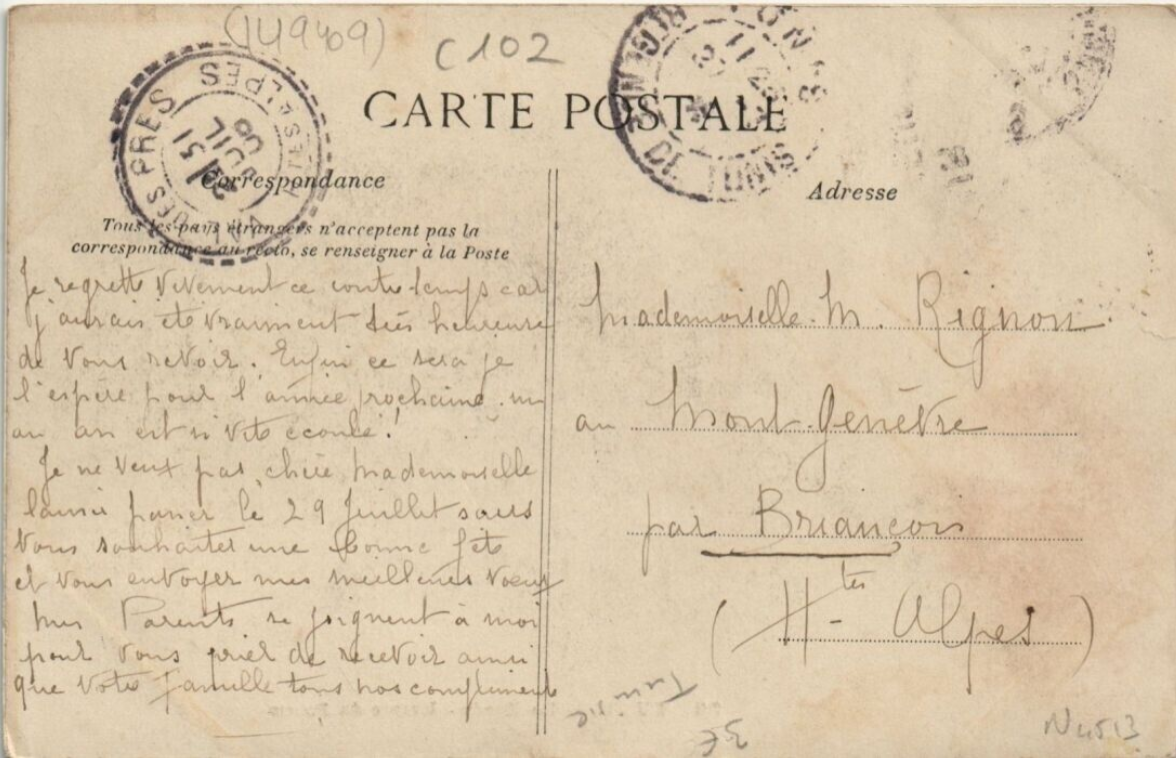 (14949)
C102
CARTE POSTALE
VAL DES PRES
Htes ALPES
31
JUIL
06
TUNIS
RÉGENCE DE TUNIS
Correspondance
Tous les pays étrangers n'acceptent pas la
correspondance au recto, se renseigner à la Poste
Je regrette vivement ce contre temps car
j'aurais été vraiment très heureuse
de vous revoir. Enfin ce sera je
l'espère pour l'année prochaine. un
an an est si vite écoulé!
Je ne veux pas, chère Mademoiselle
laisser passer le 29 Juillet sans
vous souhaiter une bonne fête
et vous envoyer mes meilleurs voeux
mes Parents se joignent à moi
pour vous prier de recevoir ainsi
que votre famille tous nos compliments
Adresse
Mademoiselle M. Rignon
au Mont-Genèvre
par Briançon
(Htes Alpes)
3E
N4513